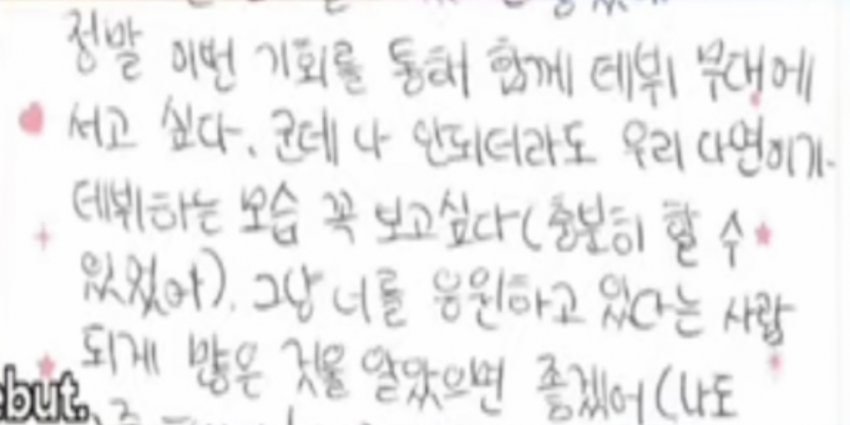 정말 이번 기회를 통해 함께 데뷔 무대에
서고 싶다. 근데 나 안되더라도 우리 다연이가
데뷔하는 모습 꼭 보고싶다 (충분히 할 수
있있어). 그냥 너를 응원하고 있다는 사람
되게 많은 것을 알았으면 좋겠어 (나도
but.